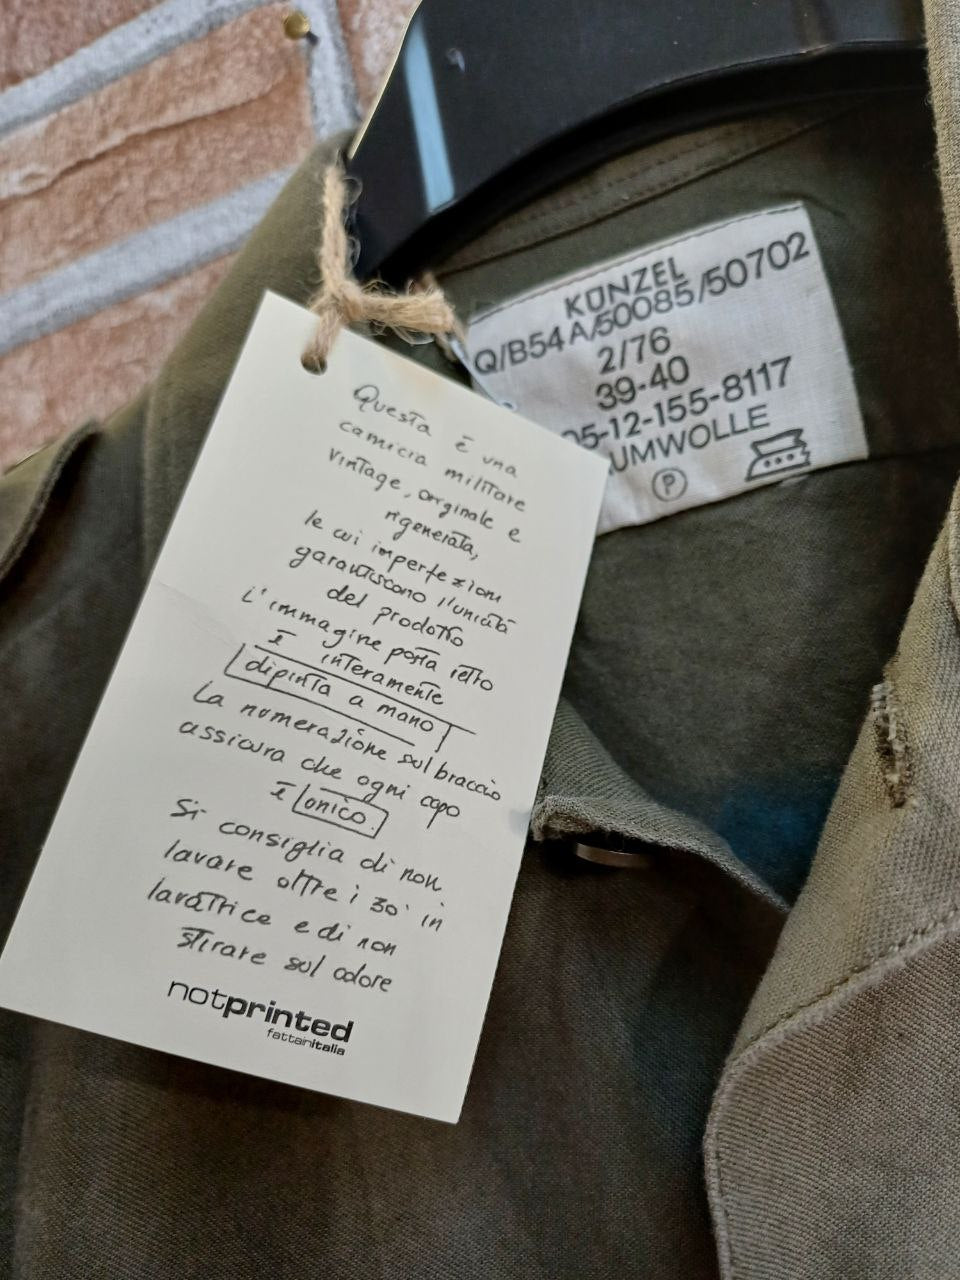 KÜNZEL
Q/B54 A/50085/50702
2/76
39-40
05-12-155-8117
UMWOLLE
P
Questa è una
camicia militare
vintage, originale e
rigenerata,
le cui imperfezioni
garantiscono l'unicità
del prodotto
L'immagine posta retro
È interamente
dipinta a mano
La numerazione sul braccio
assicura che ogni capo
È unico.
Si consiglia di non
lavare oltre i 30° in
lavatrice e di non
stirare sul colore
notprinted
fattainitalia